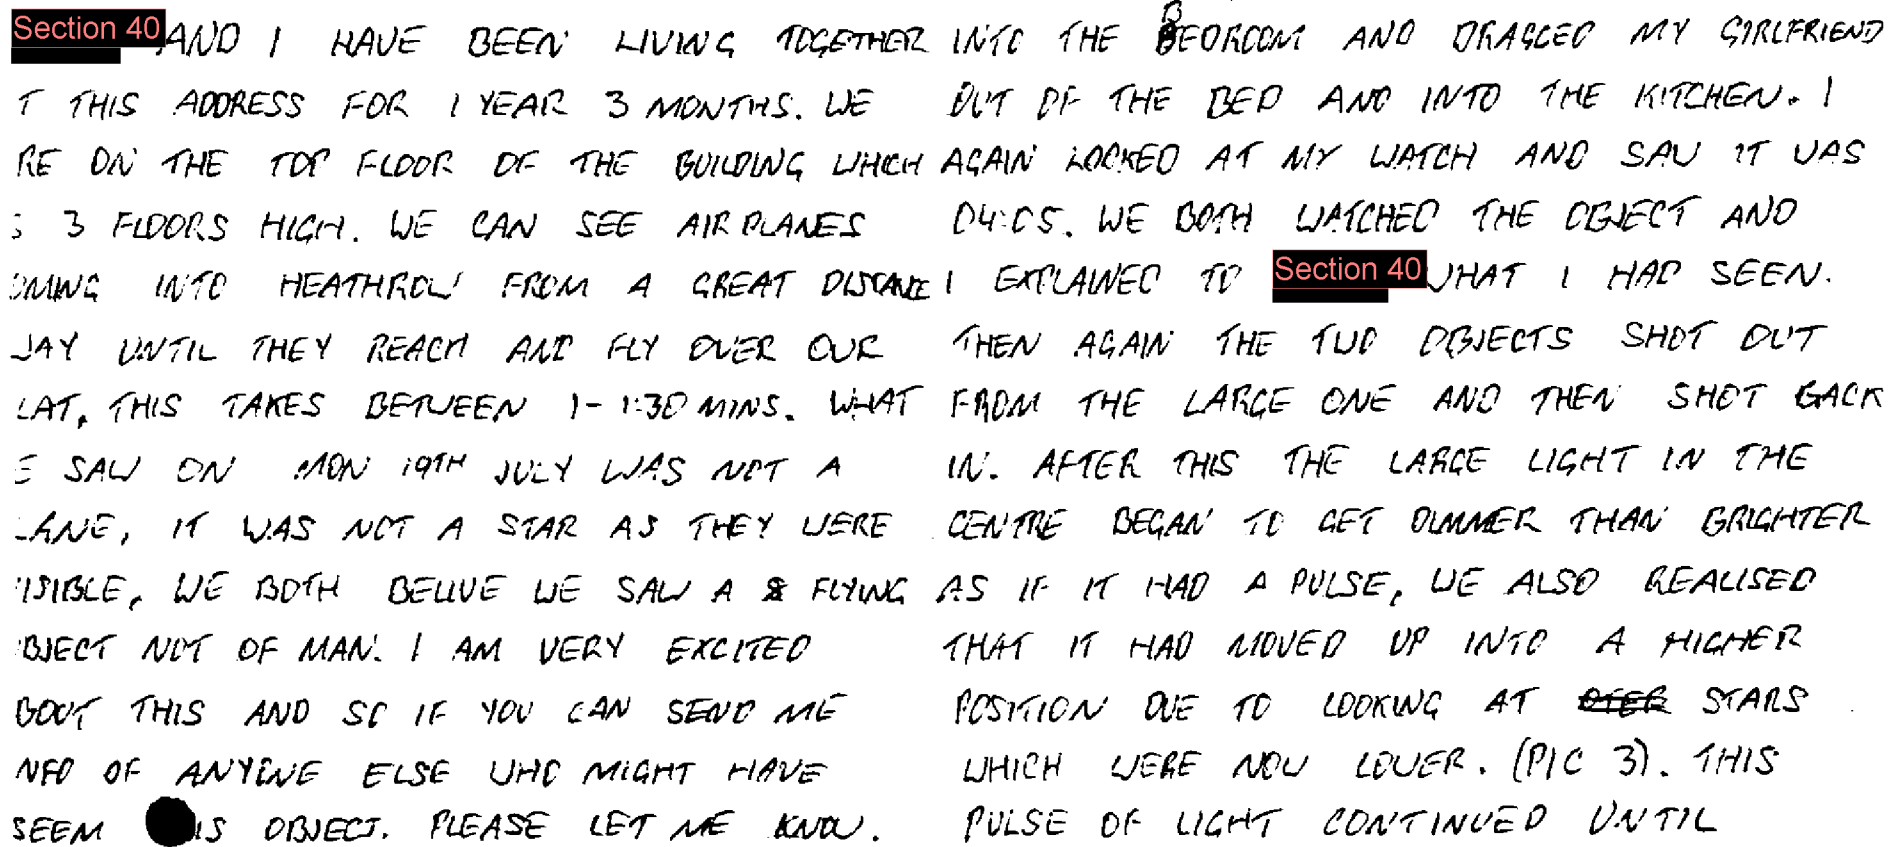 Section 40 AND I HAVE BEEN LIVING TOGETHER
T THIS ADDRESS FOR 1 YEAR 3 MONTHS. WE
RE ON THE TOP FLOOR OF THE BUILDING WHICH
S 3 FLOORS HIGH. WE CAN SEE AIR PLANES
OMING INTO HEATHROW FROM A GREAT DISTANCE
WAY UNTIL THEY REACH AND FLY OVER OUR
LAT, THIS TAKES BETWEEN 1-1:30 MINS. WHAT
E SAW ON MON 19TH JULY WAS NOT A
LANE, IT WAS NOT A STAR AS THEY WERE
ISIBLE, WE BOTH BELIVE WE SAW A FLYING
BJECT NOT OF MAN. I AM VERY EXCITED
BOUT THIS AND SO IF YOU CAN SEND ME
NFO OF ANYONE ELSE WHO MIGHT HAVE
SEEM IS OBJECT. PLEASE LET ME KNOW.
INTO THE BEDROOM AND DRAGGED MY GIRLFRIEND
OUT OF THE BED AND INTO THE KITCHEN. I
AGAIN LOOKED AT MY WATCH AND SAW IT WAS
04:05. WE BOTH WATCHED THE OBJECT AND
I EXPLAINED TO Section 40 WHAT I HAD SEEN.
THEN AGAIN THE TWO OBJECTS SHOT OUT
FROM THE LARGE ONE AND THEN SHOT BACK
IN. AFTER THIS THE LARGE LIGHT IN THE
CENTRE BEGAN TO GET DIMMER THAN BRIGHTER
AS IF IT HAD A PULSE, WE ALSO REALISED
THAT IT HAD MOVED UP INTO A HIGHER
POSITION DUE TO LOOKING AT STARS
WHICH WERE NOW LOWER. (PIC 3). THIS
PULSE OF LIGHT CONTINUED UNTIL